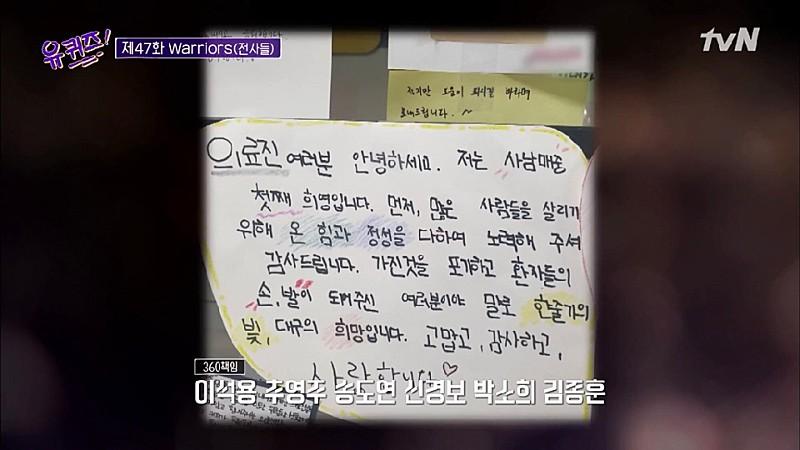 유퀴즈!
제47화 Warriors(전사들)
tvN
도움이 되시길 바라며
보내드립니다. ~
의료진 여러분 안녕하세요. 저는 사남매중
첫째 희영입니다. 먼저, 많은 사람들을 살리기
위해 온 힘과 정성을 다하여 노력해 주셔
감사드립니다. 가진것을 포기하고 환자들의
손, 발이 되어주신 여러분이야 말로 한줄기의
빛, 대구의 희망입니다. 고맙고, 감사하고,
사랑합니다 ♡
360책임
이석용 추영주 송도연 신경보 박소희 김종훈